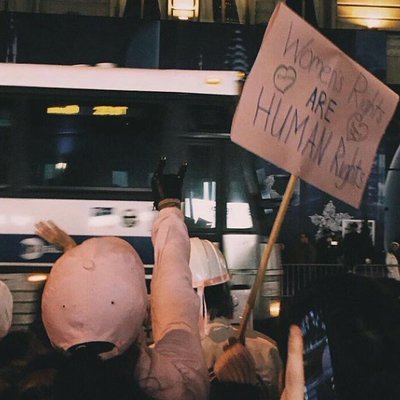 Women's Rights
ARE
HUMAN Rights